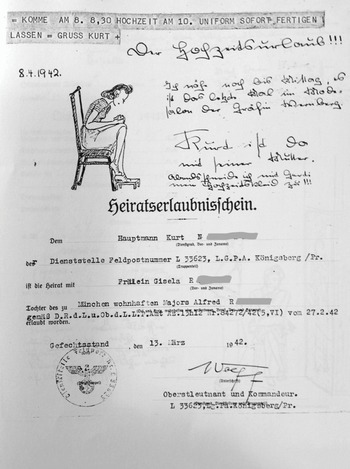 = KOMME AM 8. 8,30 HOCHZEIT AM 10. UNIFORM SOFORT FERTIGEN
LASSEN = GRUSS KURT +
Der Hochzeitsurlaub!!!
8.4.1942.
Ich nähe noch bis Mittag, es
ist das letzte Mal im Mode-
salon der Gräfin
Kurt ist da
mit seiner Mutter.
Abends schneide ich mit Gerdi
mein Hochzeitskleid zu!!!
Heiratserlaubnisschein.
Dem Hauptmann Kurt N
(Dienstgrad, Vor- und Zuname)
der Dienststelle Feldpostnummer L 33623, L.G.P.A. Königsberg /Pr.
(Truppenteil)
ist die Heirat mit Fräulein Gisela R
(Vor- und Zuname)
Tochter des zu München wohnhaften Majors Alfred R
gemäß D.R.d.L.u.Ob.d.L. vom 27.2.42
erlaubt worden.
Gefechtsstand, den 13. März 1942.
(Unterschrift)
Oberstleutnant und Kommandeur.
L 33623, Lg.Pa.Königsberg/Pr.